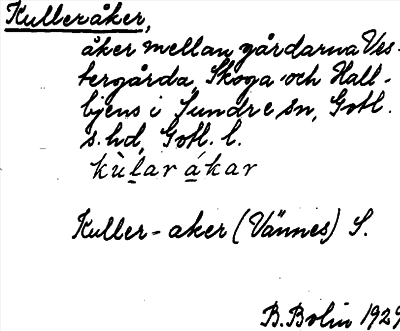 Kulleråker,
åker mellan gårdarna Ves-
tergårda, Skoga och Hall-
bjens i Sundre sn, Gotl.
s. hd, Gotl. l.
kùlar ákar
Kuller-aker (Vännes) S.
B. Bolin 1929